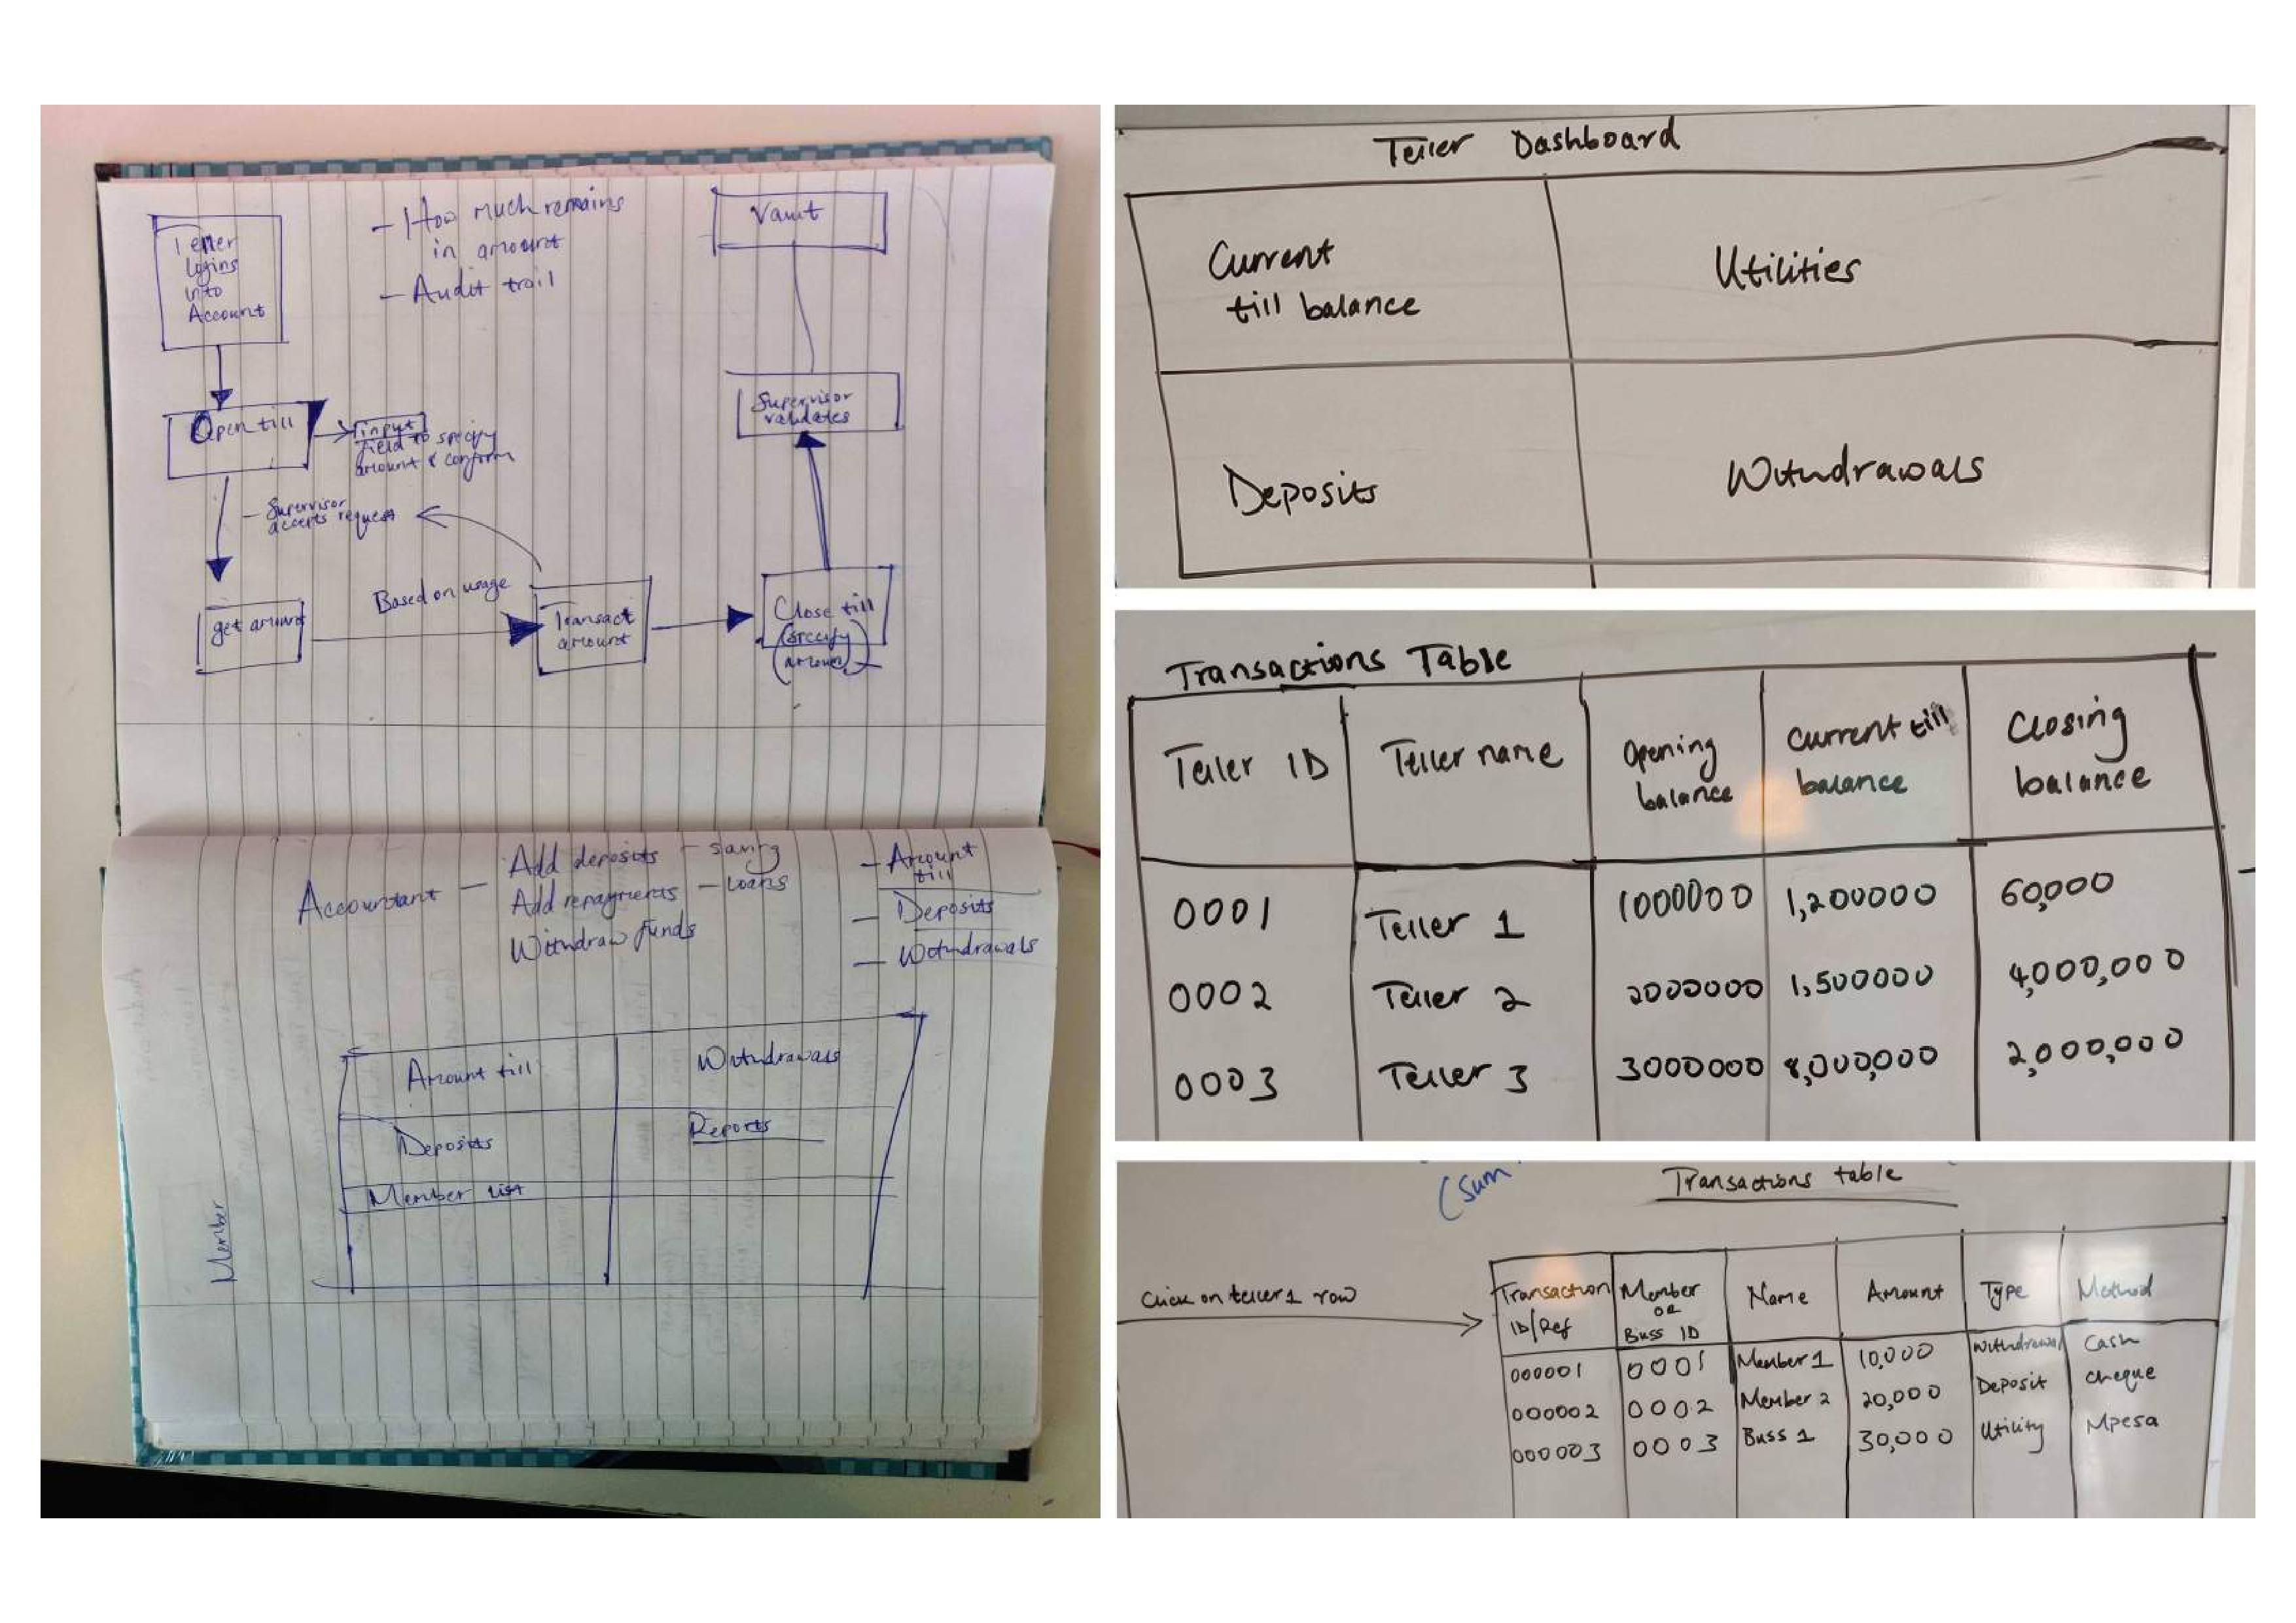 Teller
Logins
into
Account
- How much remains
in amount
- Audit trail
Vault
Open till
input
field to specify
amount & confirm
Supervisor
validates
- Supervisor
accepts request
get amount
Based on usage
Transact
amount
Close till
(specify
amount)
Accountant -
Add deposits - saving
Add repayments - Loans
Withdraw funds
- Amount
till
- Deposits
- Withdrawals
Amount till
Withdrawals
Deposits
Reports
Member list
Member
Teller Dashboard
Current
till balance
Utilities
Deposits
Withdrawals
Transactions Table
Teller ID
Teller name
Opening
balance
Current till
balance
Closing
balance
0001 Teller 1 1000000 1,200000 60,000
0002 Teller 2 2000000 1,500000 4,000,000
0003 Teller 3 3000000 8,000,000 2,000,000
(Sum
Transactions table
Click on teller 1 row
Transaction
ID/Ref
Member
OR
Buss ID
Name
Amount
Type
Method
000001 0001 Member 1 10,000 Withdrawal Cash
000002 0002 Member 2 20,000 Deposit cheque
000003 0003 Buss 1 30,000 Utility Mpesa